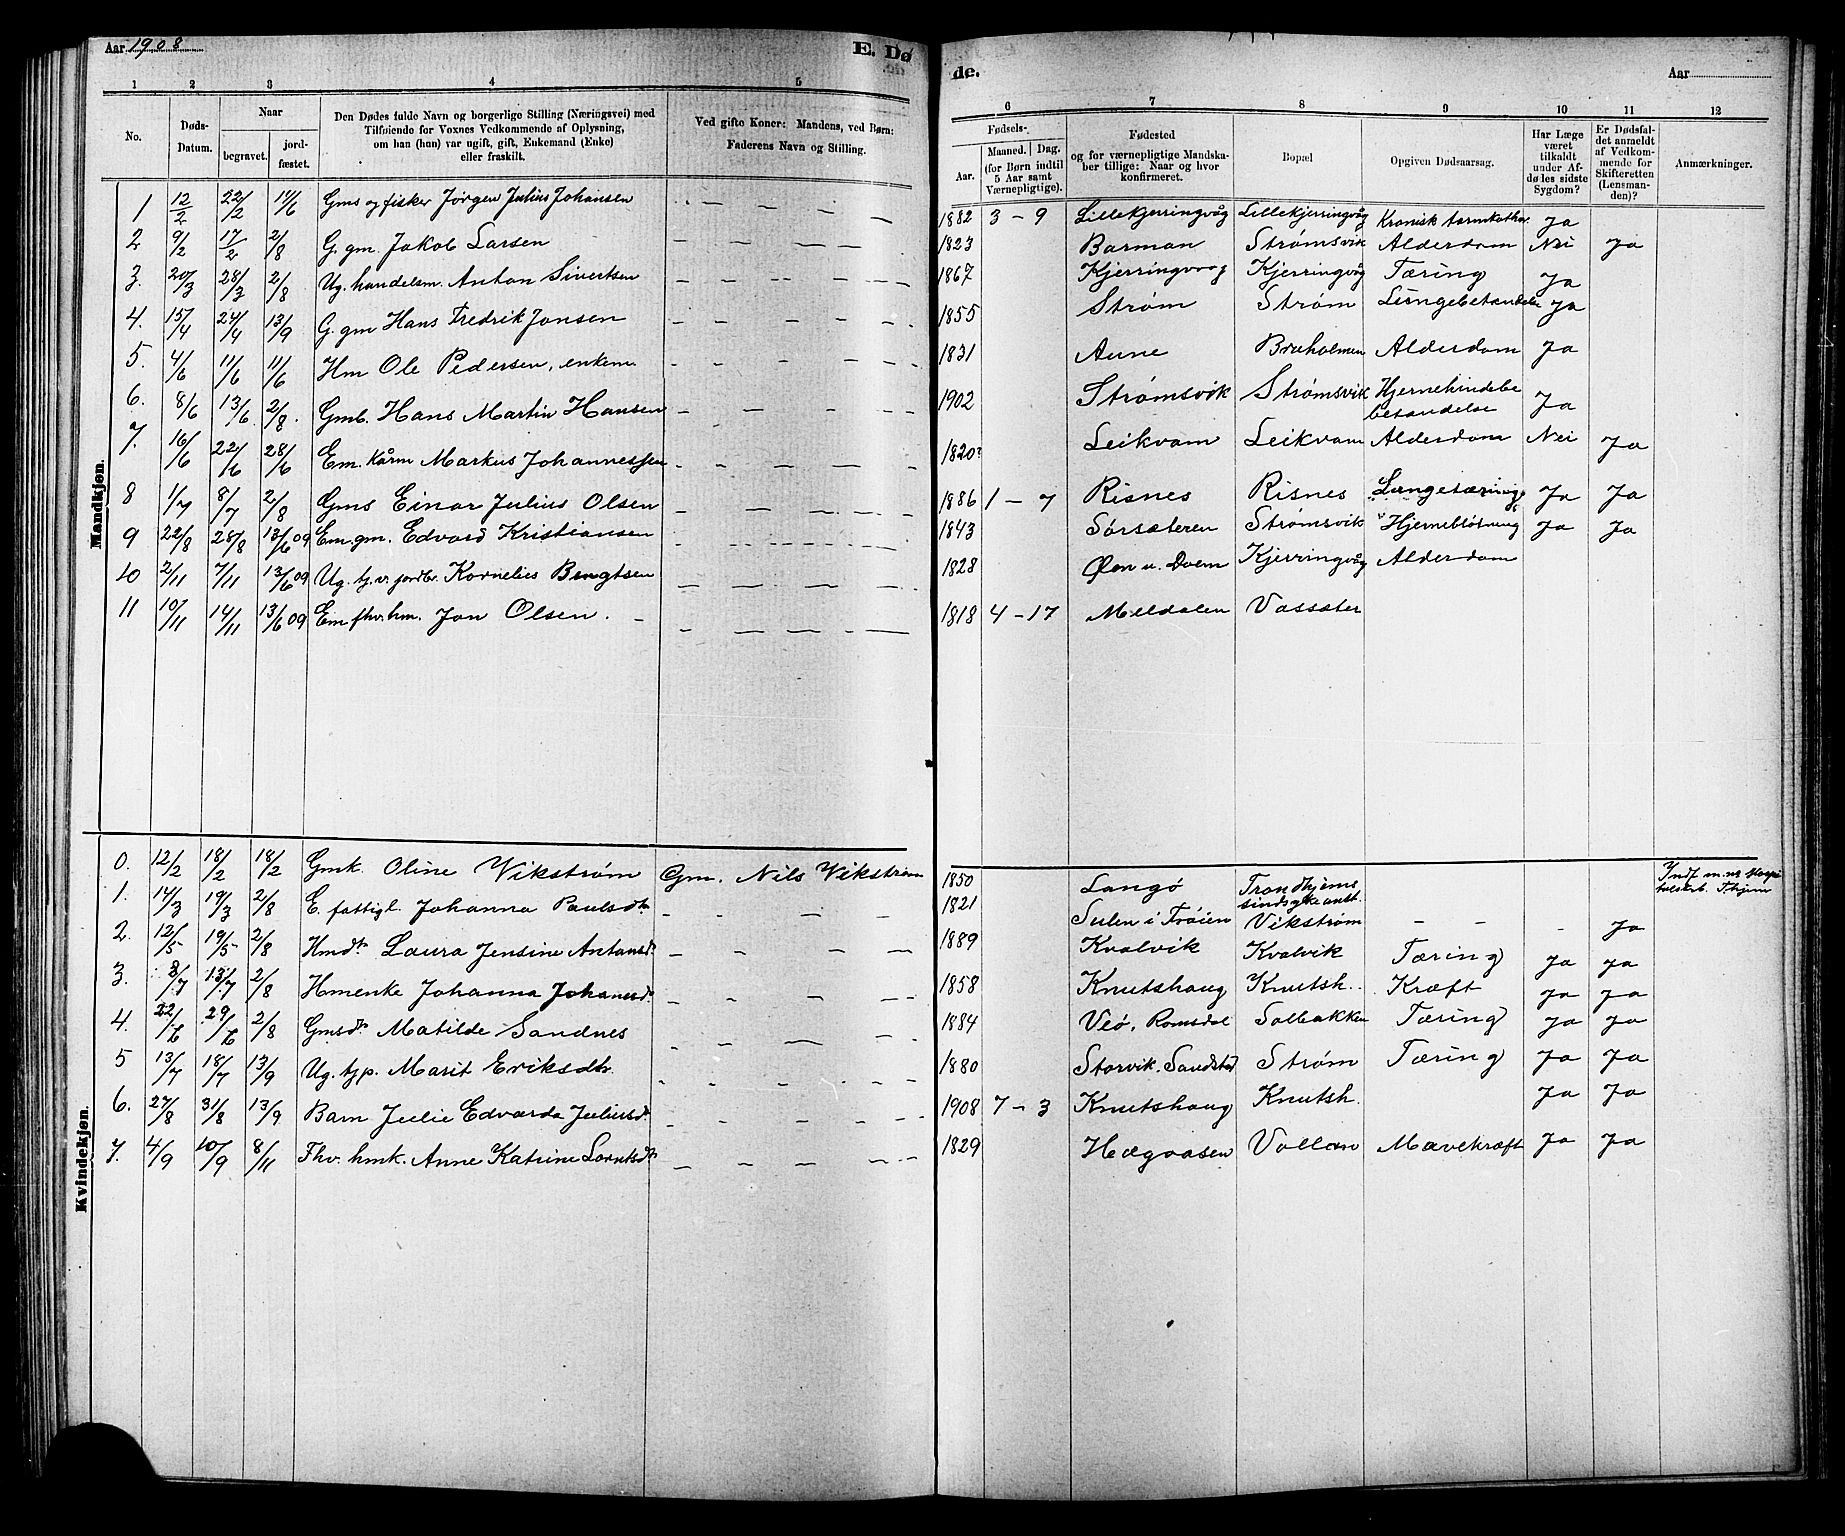 Aar 1908
E. Dø
de.
Aar
1 2 3 4 5 6 7 8 9 10 11 12
No.
Døds-Datum.
Naar
begravet.
jord-fæstet.
Den Dødes fulde Navn og borgerlige Stilling (Næringsvei) med
Tilføiende for Voxnes Vedkommende af Oplysning,
om han (hun) var ugift, gift, Enkemand (Enke)
eller fraskilt.
Ved gifte Koner: Mandens, ved Børn:
Faderens Navn og Stilling.
Fødsels-
Aar.
Maaned. Dag.
(for Børn indtil
5 Aar samt
Værnepligtige).
Fødested
og for værnepligtige Mandska-
ber tillige: Naar og hvor
konfirmeret.
Bopæl
Opgiven Dødsaarsag.
Har Læge
været
tilkaldt
under Af-
dødes sidste
Sygdom?
Er Dødsfal-
det anmeldt
af Vedkom-
mende for
Skifteretten
(Lensman-
den)?
Anmærkninger.
Mandkjøn.
1 12/2 22/2 11/6 Gms og fisker Jørgen Julius Johansen — — — — 1882 3 – 9 Lillekjerringvåg Lillekjerringvåg Kronisk tarmkathar Ja
2 9/2 17/2 2/8 G. gm. Jakob Larsen — — — — 1823 Barman Strømsvik Alderdom Nei Ja
3. 20/3 28/3 2/8 Ug. handelsm. Anton Sivertsen — — — — 1867 Kjerringvaag Kjerringvåg Tæring Ja
4. 15/4 24/4 13/9 G. gm Hans Fredrik Jonsen — — — — 1855 Strøm Strøm Lungebetændelse Ja
5. 4/6 11/6 11/6 Hm Ole Pedersen, enkem. — — — — 1831 Aune Bruholmen Alderdom Ja
6. 8/6 13/6. 2/8. Gmb. Hans Martin Hansen — — — — 1902 Strømsvik Strømsvik Hjernehindebe
betændelse Ja
7. 16/6 22/6 28/6 Em. kårm Markus Johannessen — — — — 1820? Leikvam Leikvam Alderdom Nei Ja
8 1/7 8/7 2/8 Gms Einar Julius Olsen — — — — 1886 1 – 7 Risnes Risnes Lungetæring Ja Ja
9 22/8 28/8 13/6 09 Em. gm. Edvard Kristiansen — — — — 1843 Sørsæteren Strømsvik Hjerneblødning Ja Ja
10 2/11 7/11 13/6 09 Ug. tj. v. jordbr. Kornelius Bengtsen — — — — 1828 Øen u. Dolm Kjerringvåg Alderdom
11 10/11 14/11 13/6 09 Em fhv. hm. Jon Olsen. — — — — 1818 4 – 17 Meldalen Vassæter
Kvindekjøn.
0. 12/2 18/2 18/2 Gmk. Oline Vikstrøm Gm. Nils Vikstrøm 1850 Langø Trondhjems
sindsykeanst. Indf m. nr
1. 14/3 19/3 2/8 E. fattigl. Johanna Paulsdtr — — — — 1821 Sulen i Frøien Vikstrøm – – – Ja
2. 12/5 19/5 2/8 Hmdtr Laura Jensine Antonsdtr — — — — 1889 Kvalvik Kvalvik Tæring Ja Ja
3. 8/7 13/7 2/8 Hmenke Johanna Johansdtr. — — — — 1858 Knutshaug Knutsh.. Kræft Ja Ja
4. 22/6 29/6 2/8 Gmsdtr Matilde Sandnes — — — — 1884 Veø, Romsdal Solbakken Tæring Ja Ja
5 13/7 18/7 13/9 Ug. tjp. Marit Eriksdtr. — — — — 1880 Storvik, Sandstad Strøm Tæring Ja Ja
6. 27/8 31/8 13/9 Barn Julie Edvarda Juliusdtr. — — — — 1908 7 – 3 Knutshaug Knutsh. Ja Ja
7. 4/9 10/9 8/11 Fhv. hmk. Anne Katrine Lorntsdtr — — — — 1829 Hægaasen Vollan Mavekræft Ja Ja